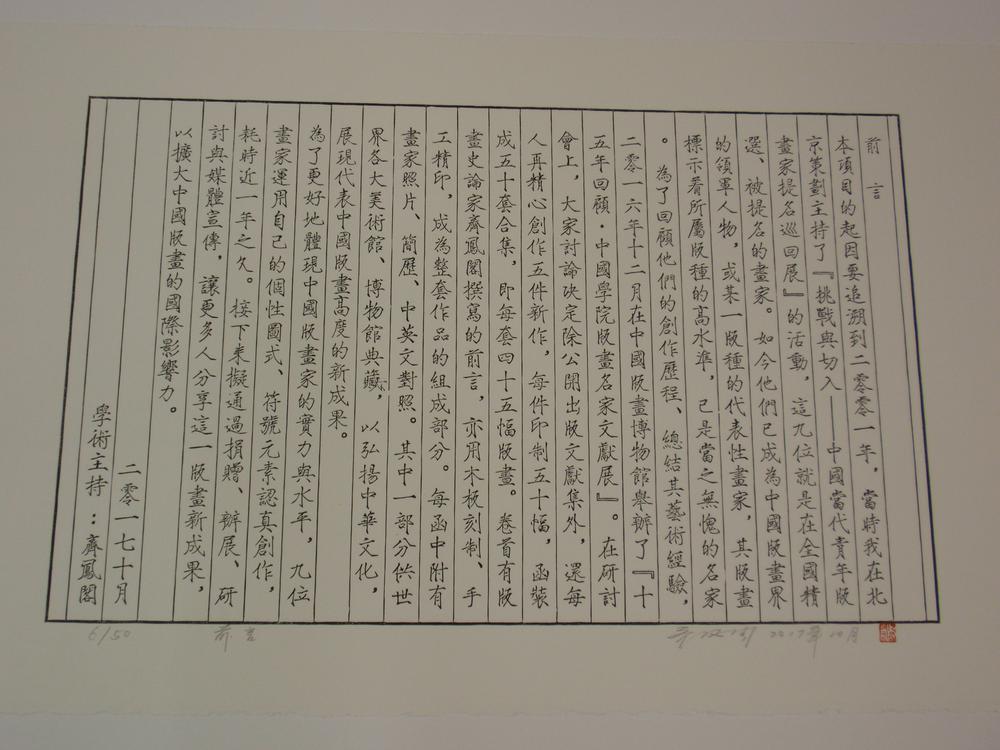 前言
本項目的起因要追溯到二零零一年，當時我在北
京策劃主持了『挑戰與切入——中國當代青年版
畫家提名巡回展』的活動，這九位就是在全國精
選、被提名的畫家。如今他們已成為中國版畫界
的領軍人物，或某一版種的代表性畫家，其版畫
標示着所屬版種的高水準，已是當之無愧的名家
。為了回顧他們的創作歷程、總結其藝術經驗，
二零一六年十二月在中國版畫博物館舉辦了『十
五年回顧·中國學院版畫名家文獻展』。在研討
會上，大家討論決定除公開出版文獻集外，還每
人再精心創作五件新作，每件印制五十幅，函裝
成五十套合集，即每套四十五幅版畫。卷首有版
畫史論家齊鳳閣撰寫的前言，亦用木板刻制、手
工精印，成為整套作品的組成部分。每函中附有
畫家照片、簡歷、中英文對照。其中一部分供世
界各大美術館、博物館典藏，以弘揚中華文化，
展現代表中國版畫高度的新成果。
為了更好地體現中國版畫家的實力與水平，九位
畫家運用自己的個性圖式、符號元素認真創作，
耗時近一年之久。接下來擬通過捐贈、辦展、研
討與媒體宣傳，讓更多人分享這一版畫新成果，
以擴大中國版畫的國際影響力。
二零一七十月
學術主持：齊鳳閣
6/50
前言
2017年10月